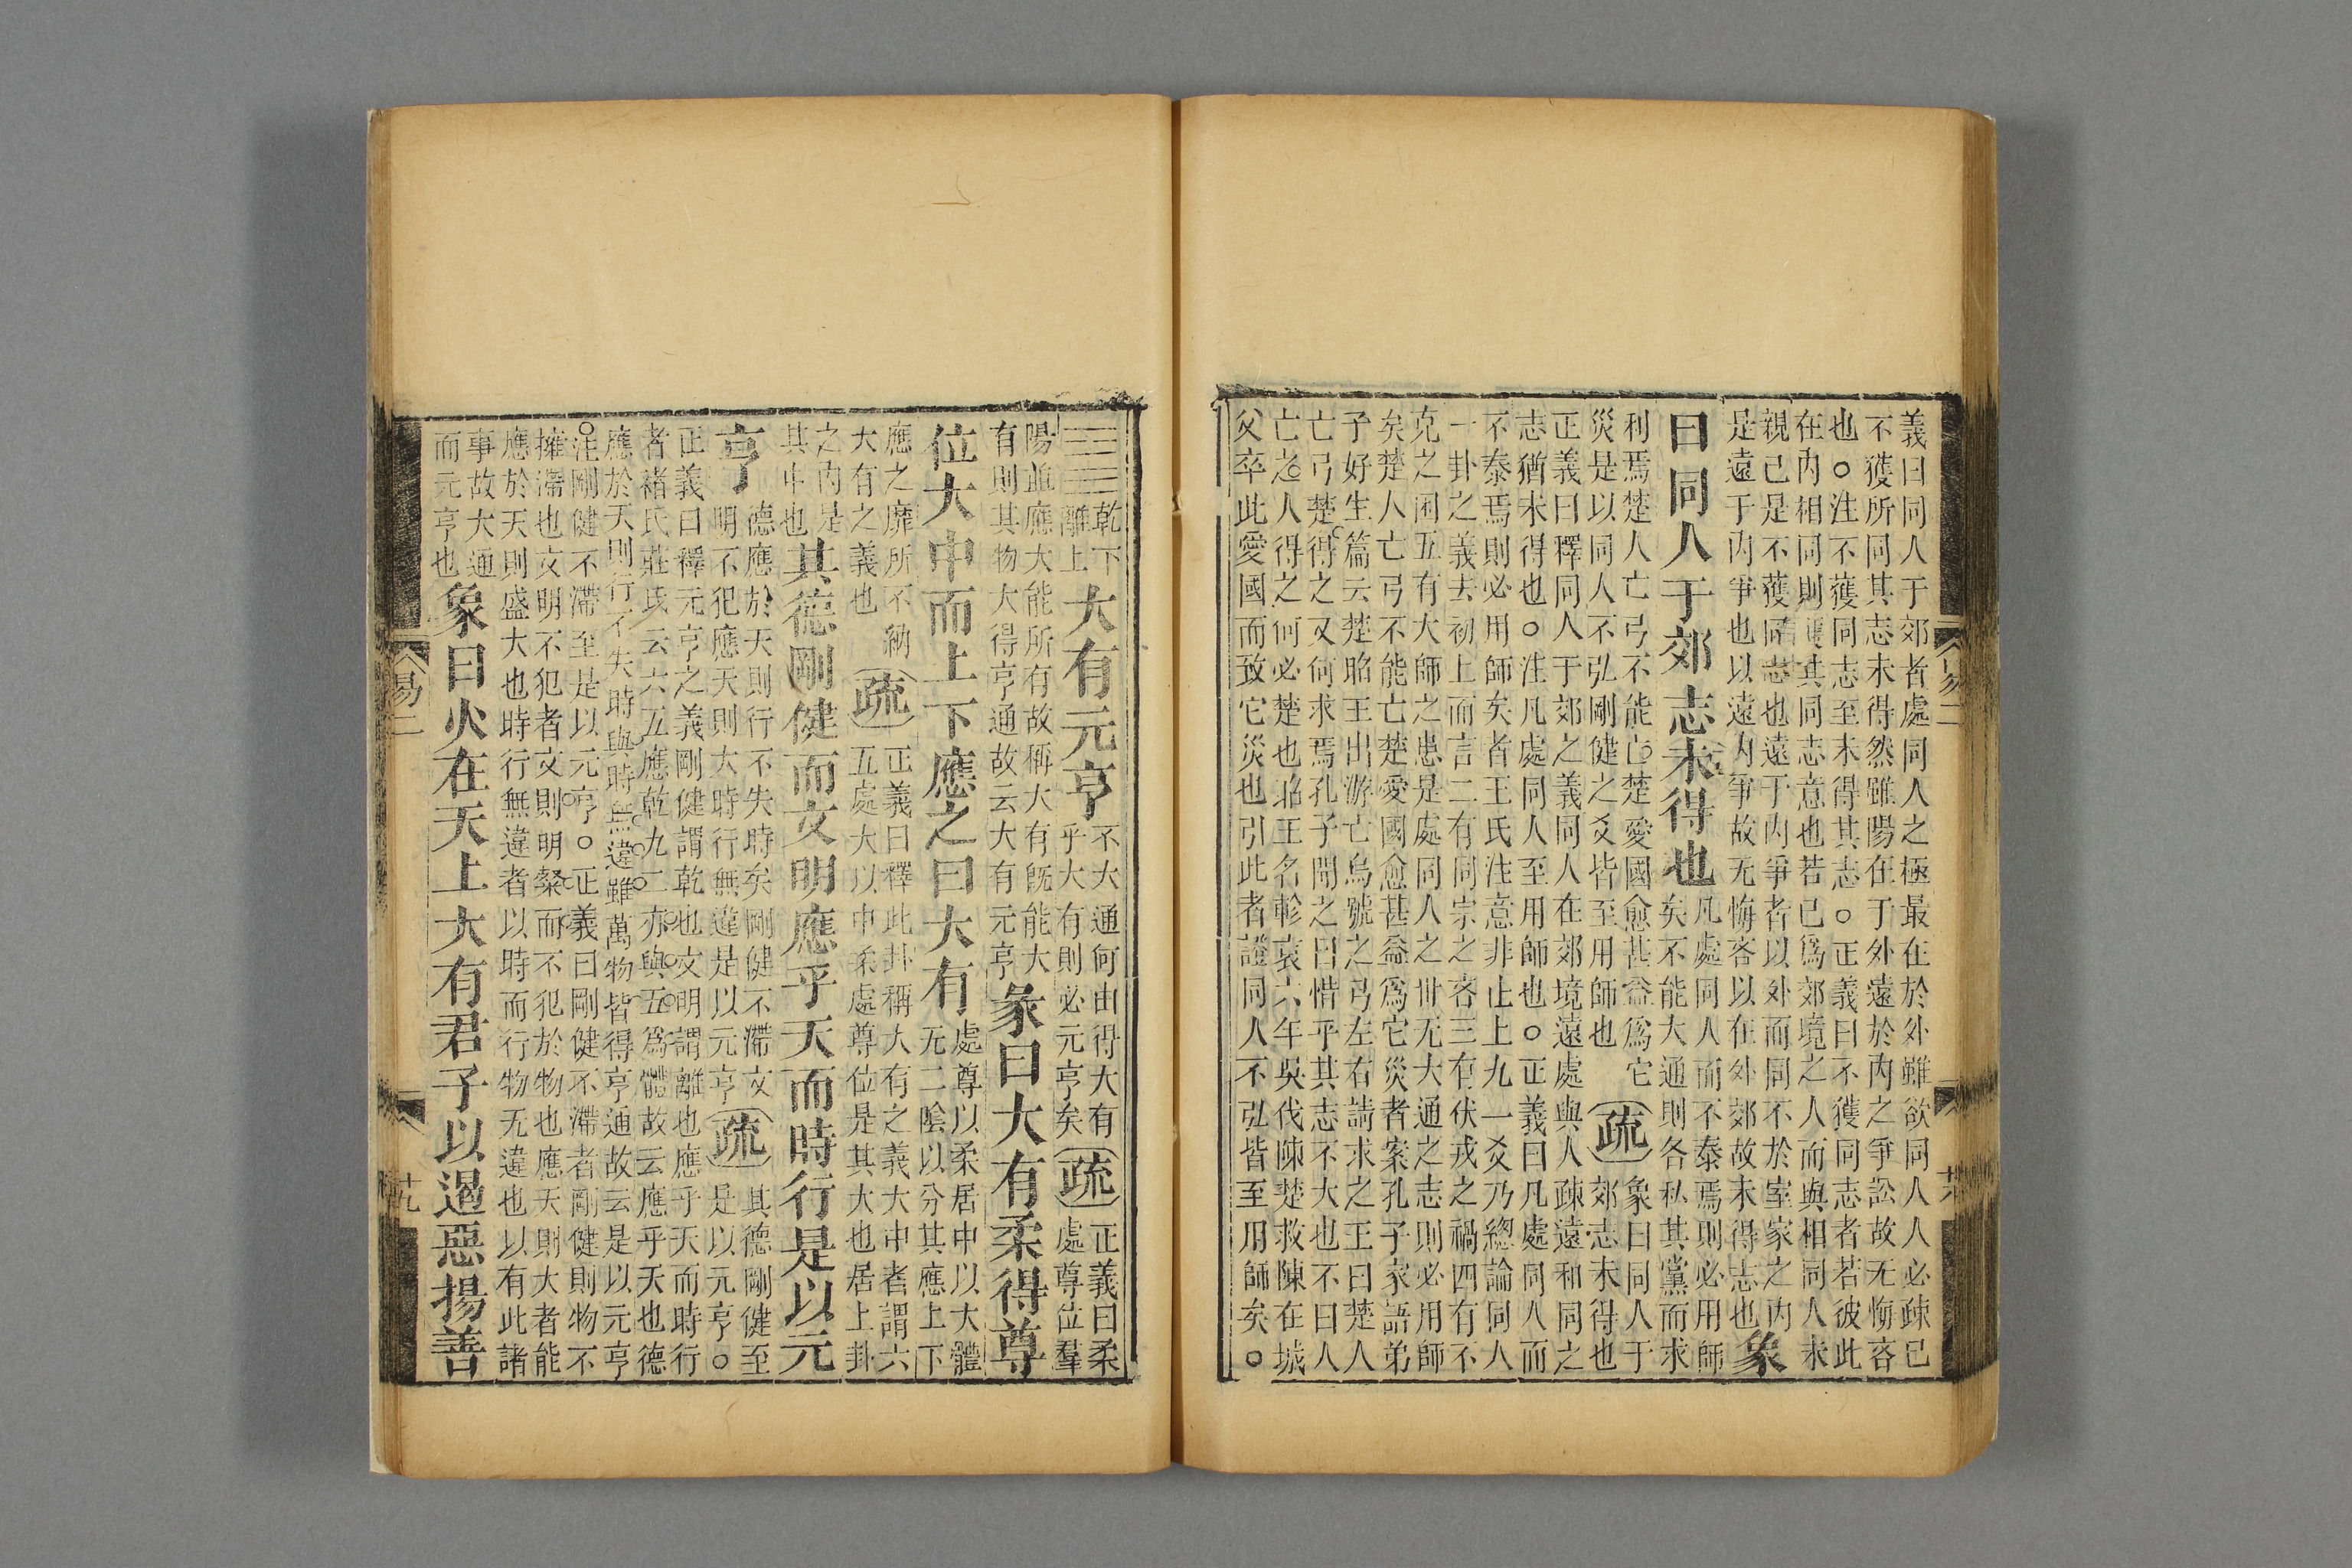 義曰同人于郊者處同人之極最在於外雖欲同人人必疎已
不獲所同其志未得然雖陽在于外遠於内之爭訟故无悔吝
也○注不獲同志至未得其志○正義曰不獲同志者若彼此
在内相同則獲其同志意也若已爲郊境之人而與相同人未
親已是不獲同志也遠于内爭者以外而同不於室家之内
是遠于内爭也以遠内爭故无悔吝以在外郊故未得志也象
曰同人于郊志未得也
凡處同人而不泰焉則必用師
矣不能大通則各私其黨而求
利焉楚人亡弓不能亡楚愛國愈甚益爲它
災是以同人不弘剛健之爻皆至用師也
疏
象曰同人于
郊志未得也
正義曰釋同人于郊之義同人在郊境遠處與人疎遠和同之
志猶未得也○注凡處同人至用師也○正義曰凡處同人而
不泰焉則必用師矣者王氏注意非止上九一爻乃緫論同人
一卦之義去初上而言二有同宗之吝三有伏戎之禍四有不
克之困五有大師之患是處同人之世无大通之志則必用師
矣楚人亡弓不能亡楚愛國愈甚益爲它災者案孔子家語弟
子好生篇云楚昭王出游亡烏號之弓左右請求之王曰楚人
亡弓楚得之又何求焉孔子聞之曰惜乎其志不大也不曰人
亡之人得之何必楚也昭王名軫哀六年吳伐陳楚救陳在城
父卒此愛國而致它災也引此者證同人不弘皆至用師矣○
易二
廿八
乾下
離上
大有元亨
不大通何由得大有
乎大有則必元亨矣
疏
正義曰柔
處尊位羣
陽並應大能所有故稱大有旣能大
有則其物大得亨通故云大有元亨
彖曰大有柔得尊
位大中而上下應之曰大有
處尊以柔居中以大體
无二陰以分其應上下
應之靡所不納
大有之義也
疏
正義曰釋此卦稱大有之義大中者謂六
五處大以中柔處尊位是其大也居上卦
之内是
其中也
其德剛健而文明應乎天而時行是以元
亨
德應於天則行不失時矣剛健不滯文
明不犯應天則大時行無違是以元亨
疏
其德剛健至
是以元亨○
正義曰釋元亨之義剛健謂乾也文明謂離也應乎天而時行
者褚氏莊氏云六五應乾九二亦與五爲體故云應乎天也德
應於天則行不失時與時無違雖萬物皆得亨通故云是以元亨
○注剛健不滯至是以元亨○正義曰剛健不滯者剛健則物不
擁滯也文明不犯者文則明粲而不犯於物也應天則大者能
應於天則盛大也時行無違者以時而行物无違也以有此諸
事故大通
而元亨也
象曰火在天上大有君子以遏惡揚善
易二
廿九